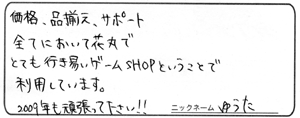 価格、品揃え、サポート
全てにおいて花丸で
とても行き易いゲームSHOPということで
利用しています。
2009年も頑張って下さい!!
ニックネーム ゆうた